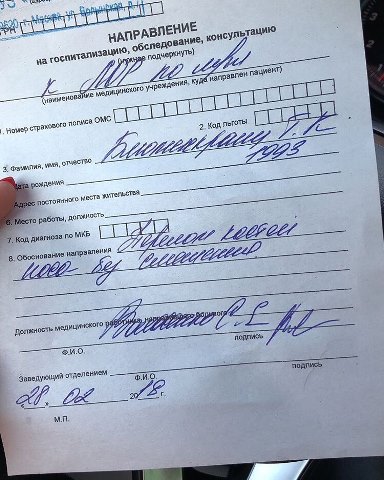 НАПРАВЛЕНИЕ
на госпитализацию, обследование, консультацию
(нужное подчеркнуть)
к ЛОР по м/ж
(наименование медицинского учреждения, куда направлен пациент)
1. Номер страхового полиса ОМС
2. Код льготы
3. Фамилия, имя, отчество
1993
Дата рождения
Адрес постоянного места жительства
6. Место работы, должность
7. Код диагноза по МКБ
8. Обоснование направления Перелом костей
носа без смещения
Должность медицинского работника, направившего больного
Ф.И.О.
подпись
Заведующий отделением
Ф.И.О.
подпись
28. 02 2018 г.
М.П.